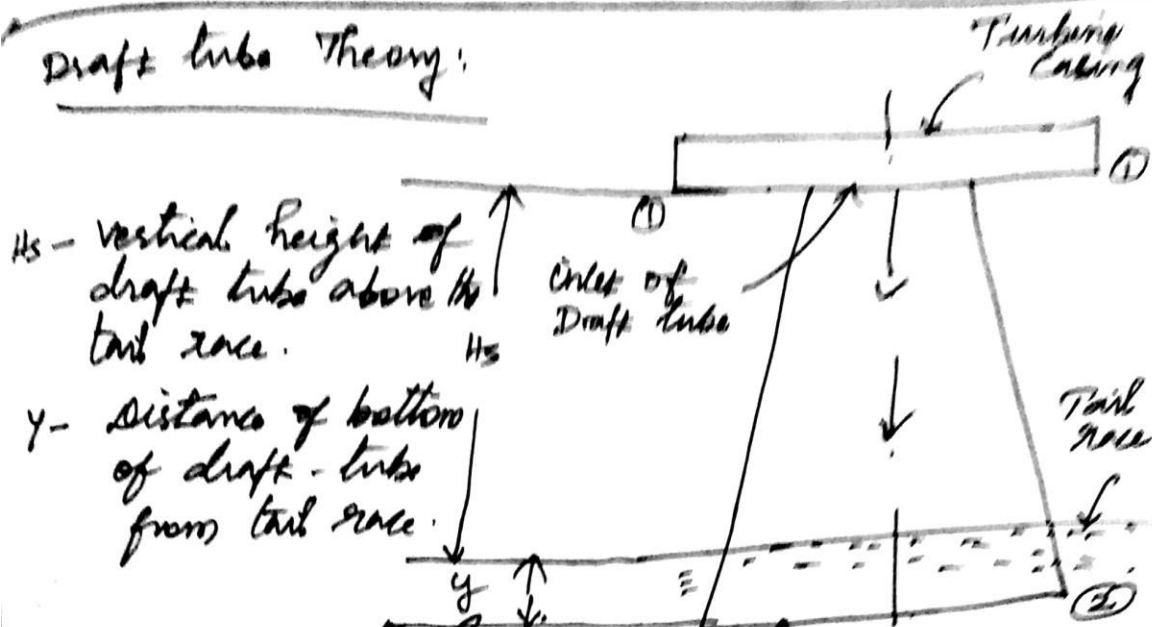 Draft tube Theory:
Turbine
Casing
①
①
Hs - vertical height of
draft tube above the
tail race.
Hs
inlet of
Draft tube
Y - Distance of bottom
of draft-tube
from tail race.
Tail
race
y
②